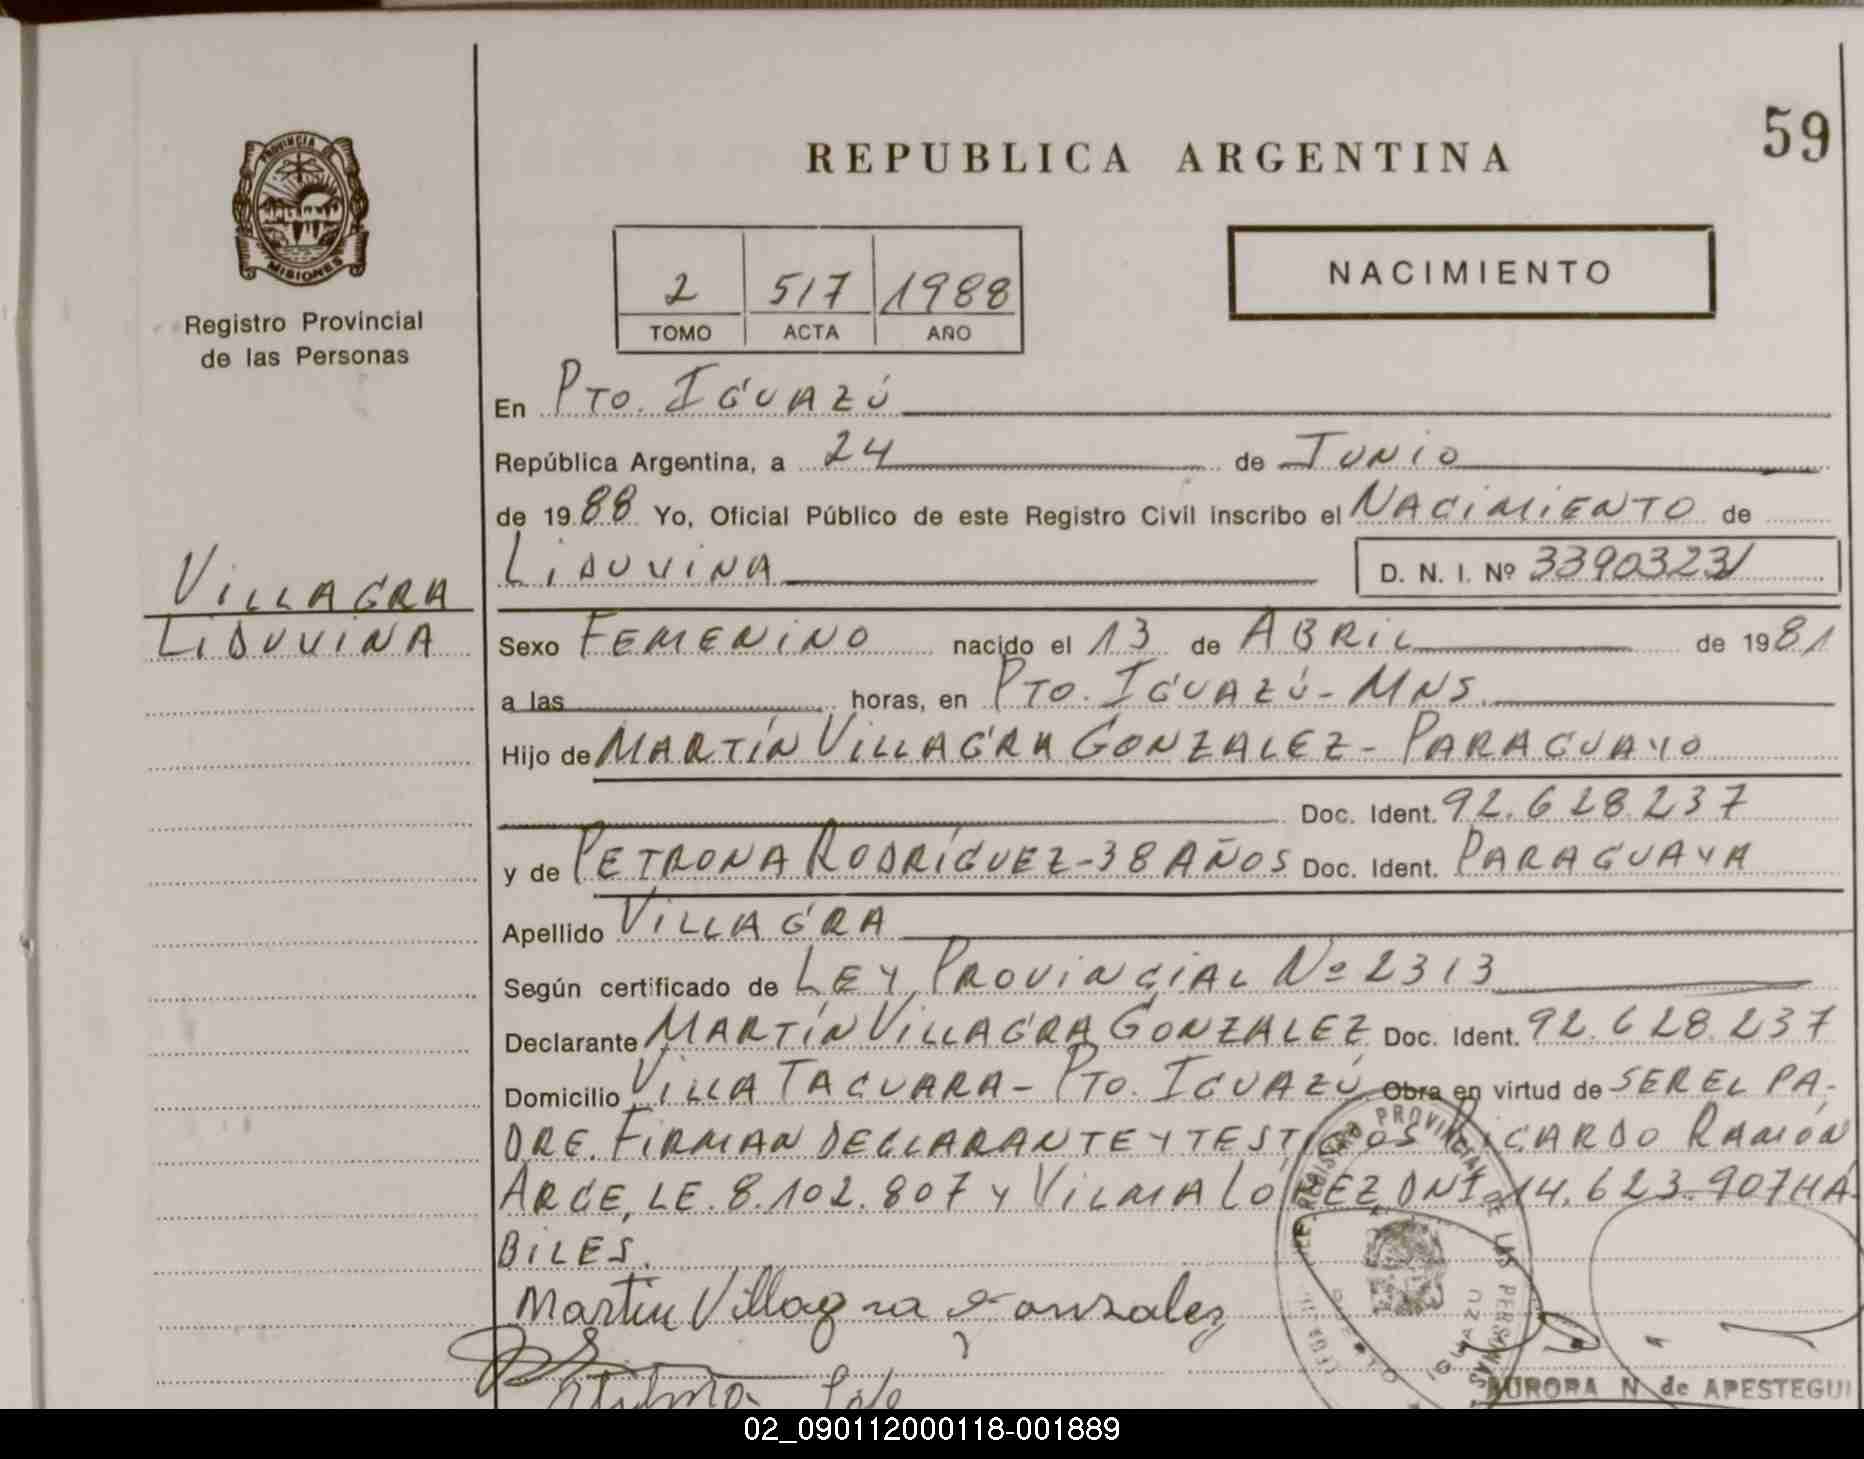 59
REPUBLICA ARGENTINA
PROVINCIA DE
MISIONES
Registro Provincial
de las Personas
2 517 1988
TOMO ACTA AÑO
NACIMIENTO
En PTO. IGUAZÚ
República Argentina, a 24 de JUNIO
de 1988 Yo, Oficial Público de este Registro Civil inscribo el NACIMIENTO de
LIDUVINA D. N. I. Nº 33903231
VILLAGRA
LIDUVINA
Sexo FEMENINO nacido el 13 de ABRIL de 1981
a las horas, en PTO. IGUAZÚ - MNS.
Hijo de MARTÍN VILLAGRA GONZALEZ - PARAGUAYO
Doc. Ident. 92.628.237
y de PETRONA RODRÍGUEZ - 38 AÑOS Doc. Ident. PARAGUAYA
Apellido VILLAGRA
Según certificado de LEY PROVINCIAL Nº 2313
Declarante MARTÍN VILLAGRA GONZALEZ Doc. Ident. 92.628.237
Domicilio VILLA TACUARA - PTO. IGUAZÚ Obra en virtud de SER EL PA-
DRE. FIRMAN DECLARANTE Y TESTIGOS RICARDO RAMÓN
ARCE, LE. 8.102.807 Y VILMA LÓPEZ DNI. 14.623.907 HÁ-
BILES.
Martin Villagra Gonzalez
REGISTRO PROVINCIAL DE LAS PERSONAS
IGUAZU
AURORA N. de APESTEGUI
02_090112000118-001889